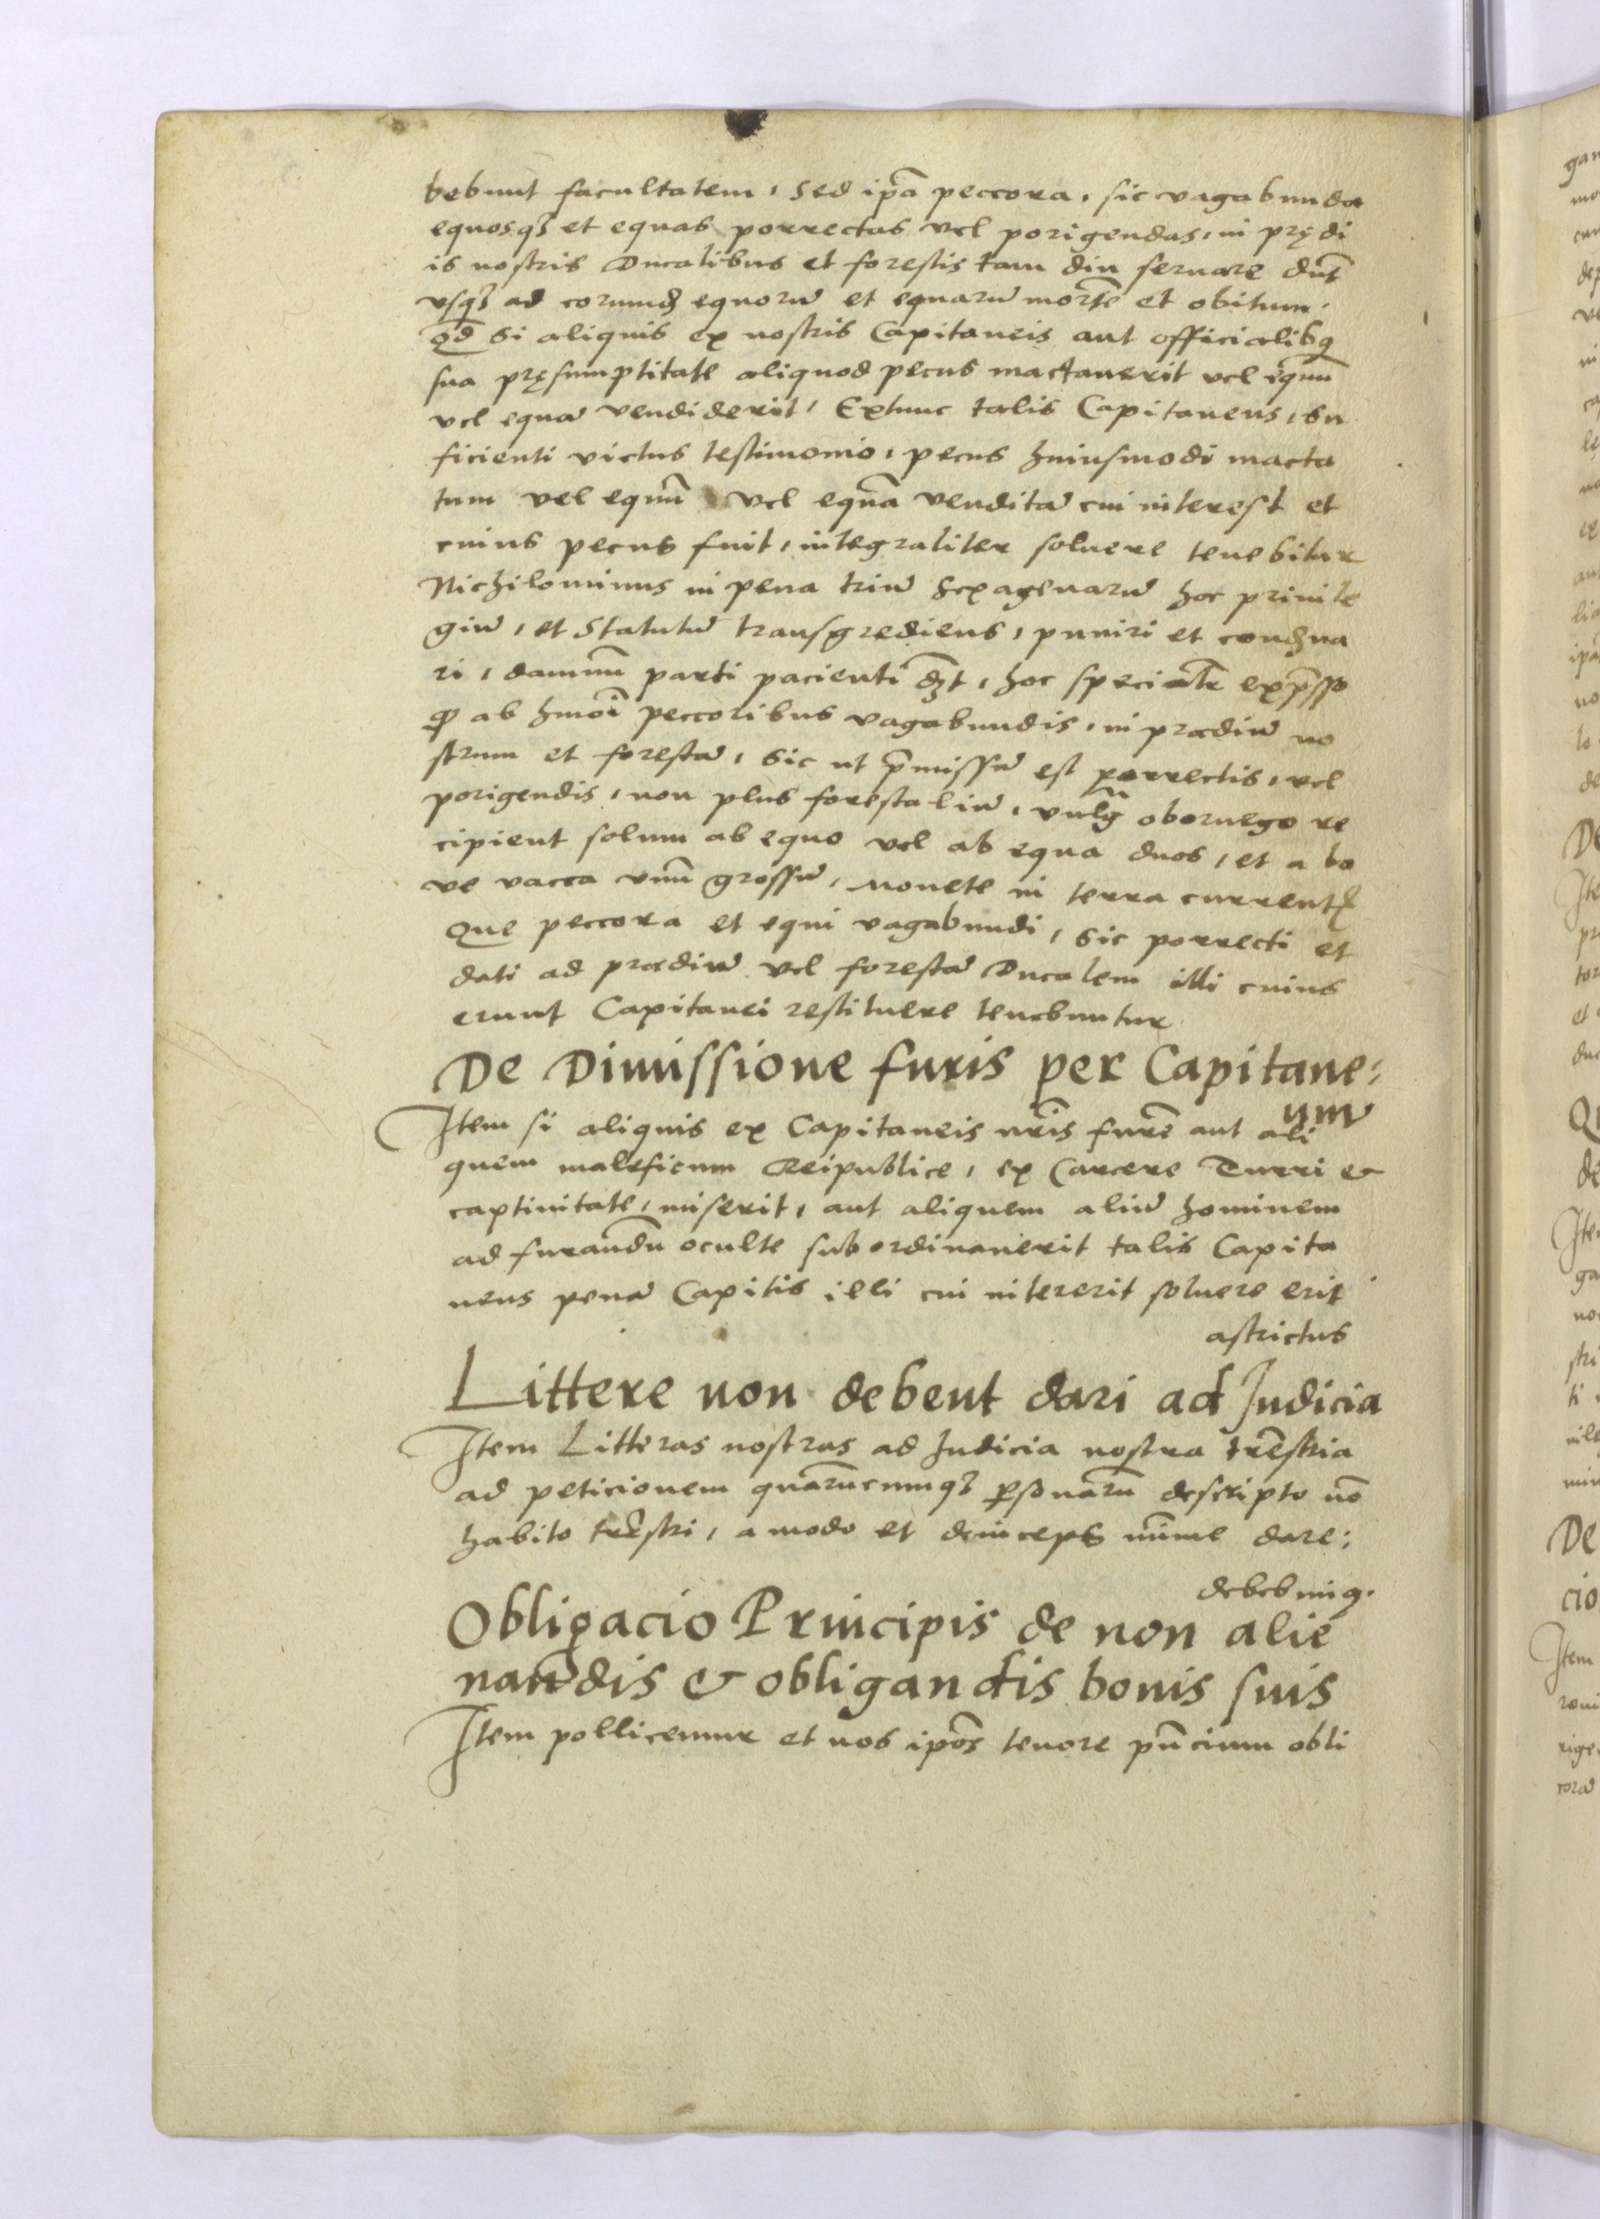 bebunt facultatem, Sed ip̄a peccora, sic vagabunda
equosq₃ et equas porrectas vel porigendas, in prędi
is nostris Ducalibus et forestis tam diu seruare dn̄t
vsq₃ ad eorumd equorū et equarū mortē et obitum.
Qd̄ Si aliquis ex nostris Capitaneis aut officialibꝰ
sua pręsumptitate aliquod pecus mactauerit vel equū
vel equā vendiderit, Extunc talis Capitaneus, su
ficienti victus testimonio, pecus huiusmodi macta
tum vel equū vel equā venditā cui interest et
cuius pecus fuit, integraliter soluere tenebitur
Nichilominus in pena triū Sexagenarū hoc priuile
giū, et Statutū transgrediens, puniri et condꝫna
ri, damnū parti pacienti dꝫt, hoc specialr̄ exp̄sso
ꝙ ab hmōi peccoribus vagabundis, in prædiū no
strum et forestā, Sic ut p̄missū est porrectis, vel
porigendis, non plus forestaliū, vulgr̄ obornego re
cipient solum ab equo vel ab equa duos, et a bo
ve vacca vnū grossū, monete in terra currentꝭ
Que peccora et equi vagabundi, Sic porrecti et
dati ad prædiū vel forestā Ducalem illi cuius
erunt Capitanei restituere tenebuntur
De Dimissione furis per Capitane:
um
Item si aliquis ex Capitaneis nr̄is furē aut ali
quem maleficum Reipublice, ex Carcere Turri &
captiuitate, miserit, aut aliquem aliū hominem
ad furandū oculte subordinauerit talis Capita
neus penā Capitis illi cui intererit soluere erit
astrictus
Littere non debent dari ad Judicia
Item Litteras nostras ad Judicia nostra trēstria
ad peticionem quarūcumq₃ ꝑsonarū descripto nō
habito trēstri, a modo et deinceps mīme dare:
debebimꝰ.
Obligacio Principis de non alie
nandis & obligandis bonis suis
Item pollicemur et nos ip̄os tenore pn̄cium obli